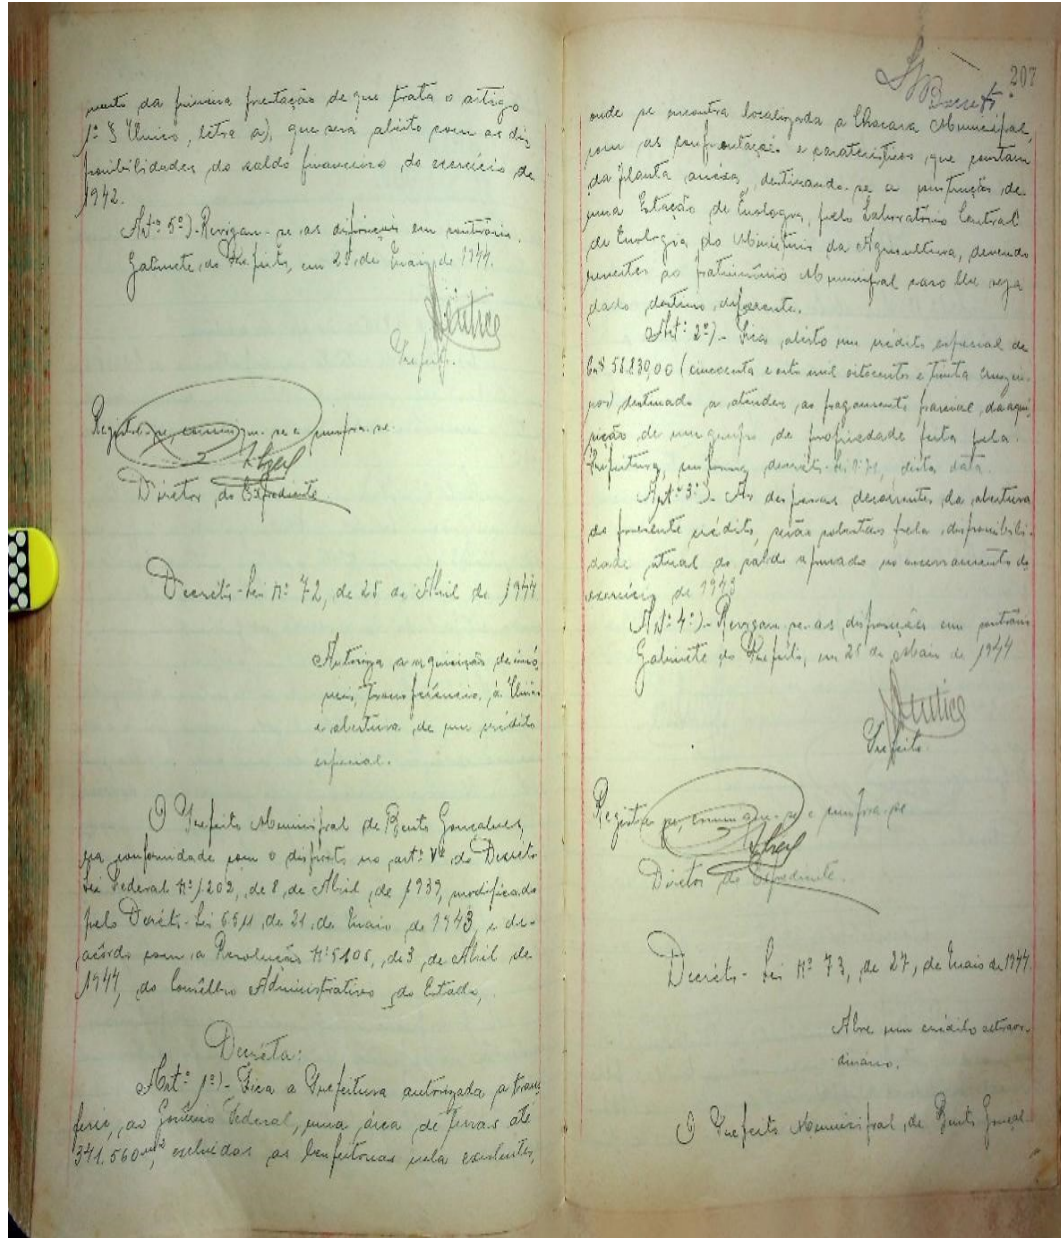 mento da primeira prestação de que trata o artigo
1º § Unico, letra a), que será abérto com as dis
ponibilidades do saldo financeiro do exercício de
1942.
Artº 5º)- Revogam-se as disposições em contrário.
Gabinete do Prefeito, em 25 de Maio de 1944.
Prefeito.
Registre-se, comunique-se e cumpra-se.
Diretor do Expediente
Decréto-Lei Nº 72, de 25 de Abril de 1944
Autoriza a aquisição de imó
veis, transferência, á União
e abertura de um crédito
especial.
O Prefeito Municipal de Bento Gonçalves,
na conformidade com o disposto no artº do Decreto
Lei Federal Nº 1202, de 8, de Abril, de 1939, modificado
pelo Decréto-Lei 5511, de 21, de Maio de 1943, e de
acôrdo com a Resolução Nº 5106, de 3, de Abril de
1944, do Consêlho Administrativo do Estado,
Decréta:
Artº 1º)- Fica a Prefeitura autorizada a trans
ferir, ao Govêrno Federal, uma área de terras até
341.560 m2, excluidas as benfeitorias nela existentes,
207
onde se encontra localizada a Chacara Municipal,
com as confrontações e caraterísticos, que constam
da planta anéxa, destinando-se a construção de
uma Estação de Enologia, pelo Laboratório Central
de Enologia do Ministério da Agricultura, devendo
reverter ao patrimônio Municipal caso lhe seja
dado destino diferente.
Artº 2º)- Fica abérto um crédito especial de
Cr$ 58.830,00 (cincoenta e oito mil oitocentos e trinta cruzei-
ros) destinado a atender ao pagamento parcial da aqui
sição de um de propriedade feita pela
Prefeitura, conforme decréto-lei nº 71, desta data.
Artº 3º)- As despesas decorrentes da abertura
do presente crédito, serão cobertas pela disponibili-
dade atual do saldo apurado no encerramento do
exercício de 1943
Artº 4º)- Revogam-se as disposições em contrário
Gabinete do Prefeito, em 25 de Maio de 1944
Prefeito.
Registre-se, comunique-se e cumpra-se
Diretor do Expediente.
Decréto-Lei Nº 73, de 27, de Maio de 1944
Abre um crédito extraor-
dinario.
O Prefeito Municipal, de Bento Gonçal-